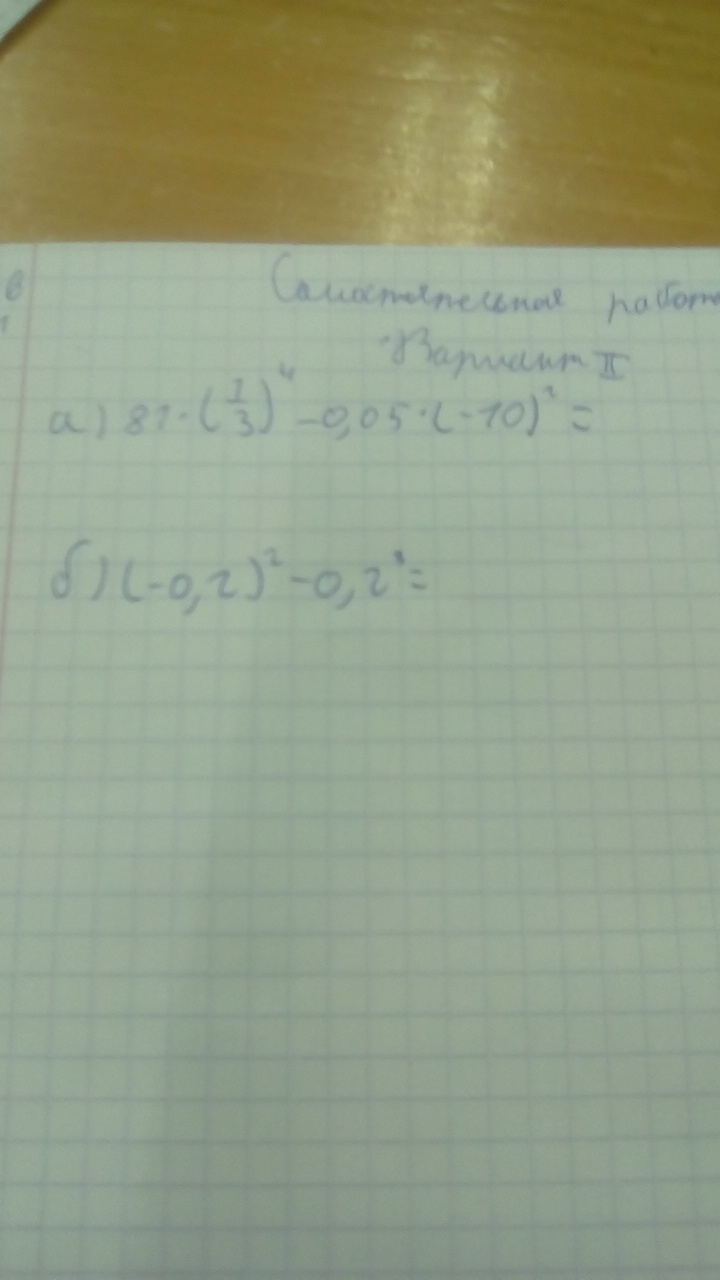 в
Самостоятельная работа
1
Вариант II
а) 81·(1/3)⁴ -0,05·(-10)² =
б) (-0,2)² -0,2³ =